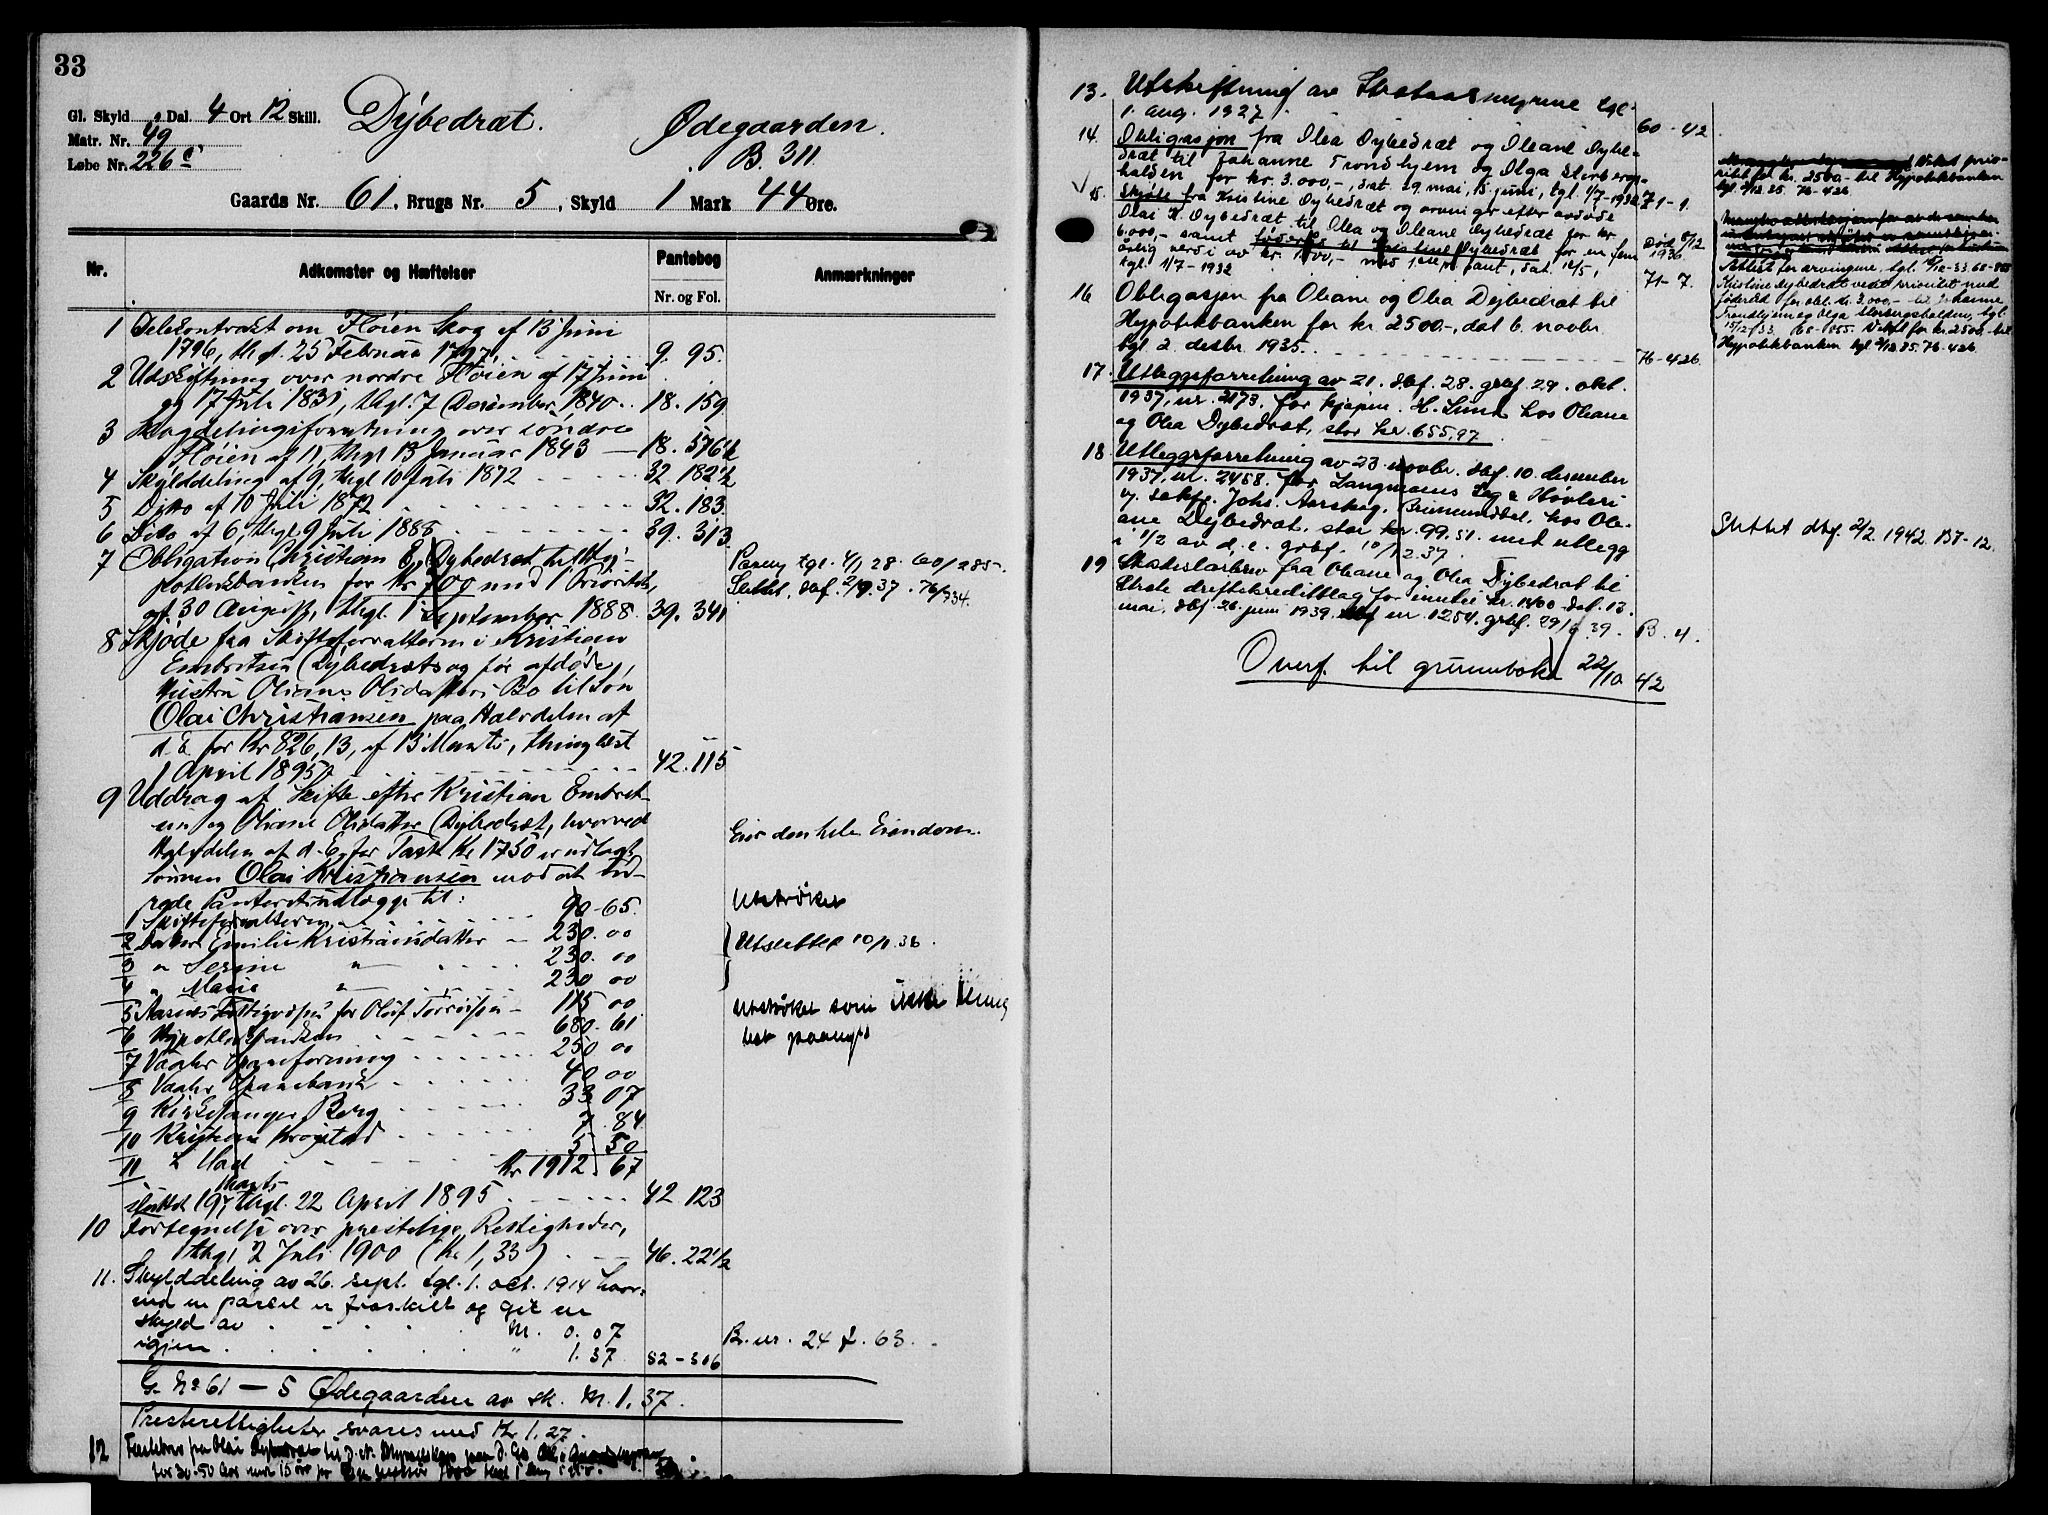 33
Gl. Skyld " Dal. 4 Ort 12 Skill.
Dybedræt. Ødegaarden.
Matr. Nr. 49
B. 311.
Løbe Nr. 226 c
Gaards Nr. 61, Brugs Nr. 5, Skyld 1 Mark 44 Øre.
Nr. Adkomster og Hæftelser Pantebog Anmærkninger
Nr. og Fol.
1 Delekontract om Fløien Skog af 13 Juni
1796, thgl. 25 Februar 1797. 9. 95.
2 Udskiftning over nordre Fløien af 17 Juni
og 17 Juli 1831, thgl. 7 December 1840. 18. 159
3 Skogdelingsforretning over søndre
Fløien af 11, thgl 13 Januar 1843 18. 576½
4 Skylddeling af 9, thgl 10 Juli 1872 32. 182½
5 Ditto af 10 Juli 1872 32. 183
6 Dito af 6, thgl. 9 Juli 1888 39. 313
7 Obligation Christian E. Dybedræt til Hy-
pothekbanken for Kr 700 med 1 Prioritet,
af 30 August, thgl. 1 September 1888. 39. 341
tgl. 4/1 28. 60/285.
Slettet, dbf. 2/9.37. 76/934.
8 Skjøde fra Skifteforvalteren i Kristian
Embretsen Dybedræts og før afdøde
Hustru Oliane Olsdatters Bo til Søn
Olai Christiansen paa Halvdelen af
d. E. for Kr 826,13, af 13 Marts, thinglæst
1 April 1895 42. 115
9 Uddrag af Skifte efter Kristian Embret-
sen og Oliane Olsdatter Dybedræt, hvorved
Halvdelen af d. E. for Taxt Kr 1750 er udlagt
Sønnen Olai Kristiansen mod at ud-
rede Panteretsudlæg til:
Eier den hele Eiendom.
1 Skifteforvalteren 90-65. Utstrøket
2 Datter Emilie Kristiansdatter 230. 00
3 " Serine " 230. 00 Utslettet 10/1.36.
4 " Marie " 230 00
5 Aasnes Fattigvæsen for Oluf 115 00 Utstrøket som ikke thing
6 Hypothekbanken 680. 61 læst
7 Vaaler 250 00
8 Vaaler Sparebank 40 00
9 Kirkesanger Berg 33 07
10 Kristian Krogstad 7. 84
11 5 50
Kr 1912. 67
sluttet 19 Marts, thgl. 22 April 1895 42 123
10 Fortegnelse over prestelige Rettigheder,
thgl 2 Juli 1900 (Kr 1,33) 46. 22½
11. Skylddeling av 26. sept. tgl. 1. oct. 1914 hvor-
ved en parsel er fraskilt og git en
skyld av M. 0. 07 Br. nr. 24 f. 63.
igjen " 1. 37 52-306
G. No 61 - 5 Ødegaarden av sk. M. 1. 37.
Presterettigheter svares med Kr 1,27.
12
13. Utskiftning av tgl.
1. aug. 1927 60-42
14. Obligasjon fra Olea Dybedræt og Oleane Dybe-
dræt til Johanne Trondhjem og Olga Storberg-
halden for kr. 3.000,-, dat. 29. mai, 15 juni, tgl. 1/7-1932 71-1.
15 Skjøte fra Kristine Dybedræt og arvinger efter avdøde
Olai K. Dybedræt til Olea og Oleane Dybedræt for kr
6.000,- samt føderåd til Kristine Dybedræt for en fem
årlig verdi av kr. 1500,- med 1. pr. pant, dat. 12/5,
tgl. 1/7-1932 71-7.
død 8/12 1936
16 Obligasjon fra Oleane og Olea Dybedræt til
Hypotekbanken for kr 2500,-, dat 6. novbr.
tgl 2. desbr. 1935. 76-426
17. Utleggsforretning av 21. dbf. 28. grbf. 29. okt.
1937, nr. 2173. for kjøpm. H. Lund hos Oleane
og Olea Dybedræt, stor kr. 655,97
18 Utleggsforretning av 23 novbr. dbf. 10. desember
1937, nr. 2458. for Langmoens Sag & Høvleri
v. sakfr. Johs. Aarskog. Brumunddal. hos Ole-
ane Dybedræt, stor kr. 99.51. med utlegg
i 1/2 av d. e. grbf. 10/12.37.
Slettet dbf. 2/2 1942. B7-12.
19 Skadesløsbrev fra Oleane og Olea Dybedræt til
driftskredittlag for inntil kr. 1400 dat. 13.
mai, dbf 26. juni 1939. nr. 1254. grbf. 29/6.39. B. 4.
Overf. til grunnboka 22/10 42
Veket prio-
ritet for kr. 2500,- til Hypotekbanken
tgl. 2/12 35. 76-426
Attest for arvingene, tgl. 15/12-33. 68-
Kristine Dybedræt veket prioritet med
føderåd for obl. kr. 3.000,- til Johanne
Trondhjem og Olga Storberghalden, tgl.
15/12-33. 68-855. Veket for kr 2500 til
Hypotekbanken tgl 2/12.35. 76-426